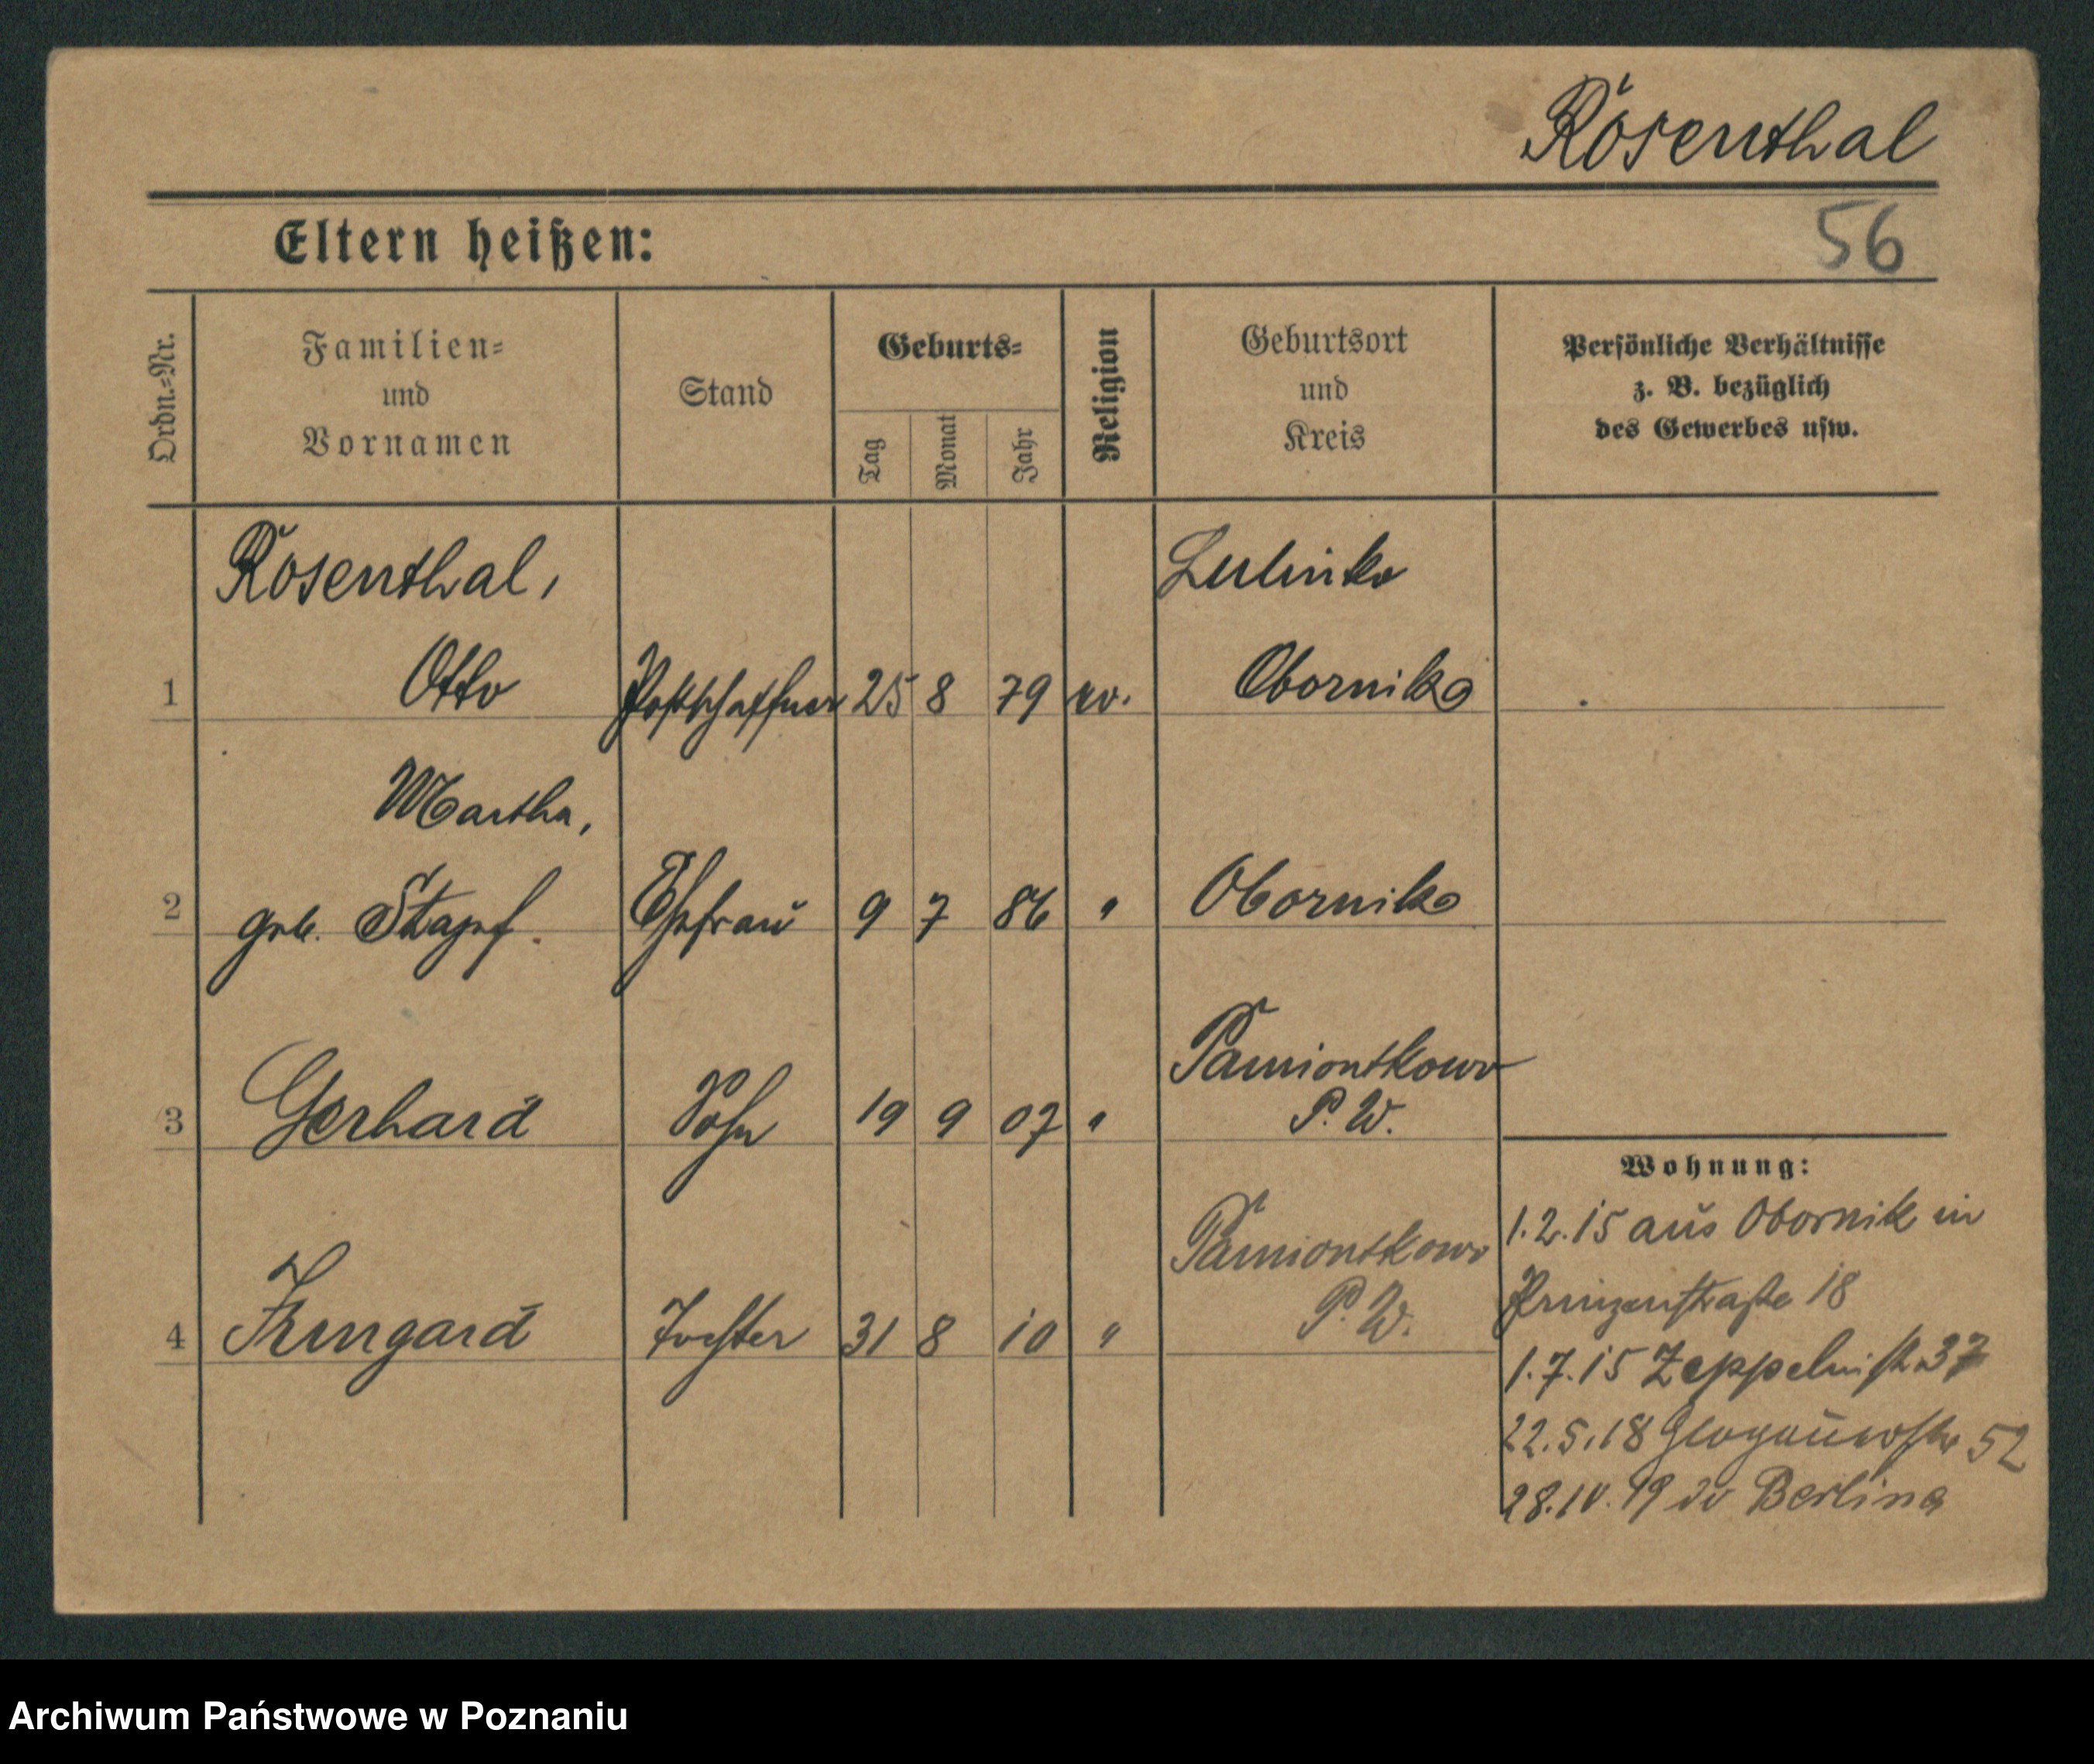 Rosenthal
Eltern heißen:
56
Ordn.-Nr.
Familien-
und
Vornamen
Stand
Geburts-
Tag
Monat
Jahr
Religion
Geburtsort
und
Kreis
Persönliche Verhältnisse
z. B. bezüglich
des Gewerbes usw.
Rosenthal,
Lulinko
1 Otto Postschaffner 25 8 79 ev. Obornik
Martha,
2 geb. Stapf. Ehefrau 9 7 86 " Obornik
Pamiontkowo
3 Gerhard Sohn 19 9 07 " P. W.
Pamiontkowo
4 Irmgard Tochter 31 8 10 " P. W.
Wohnung:
1.2.15 aus Obornik in
Prinzenstraße 18
1.7.15 Zeppelinstr. 37
22.5.18 Glogauerstr 52
28.IV.19 do Berlina
Archiwum Państwowe w Poznaniu